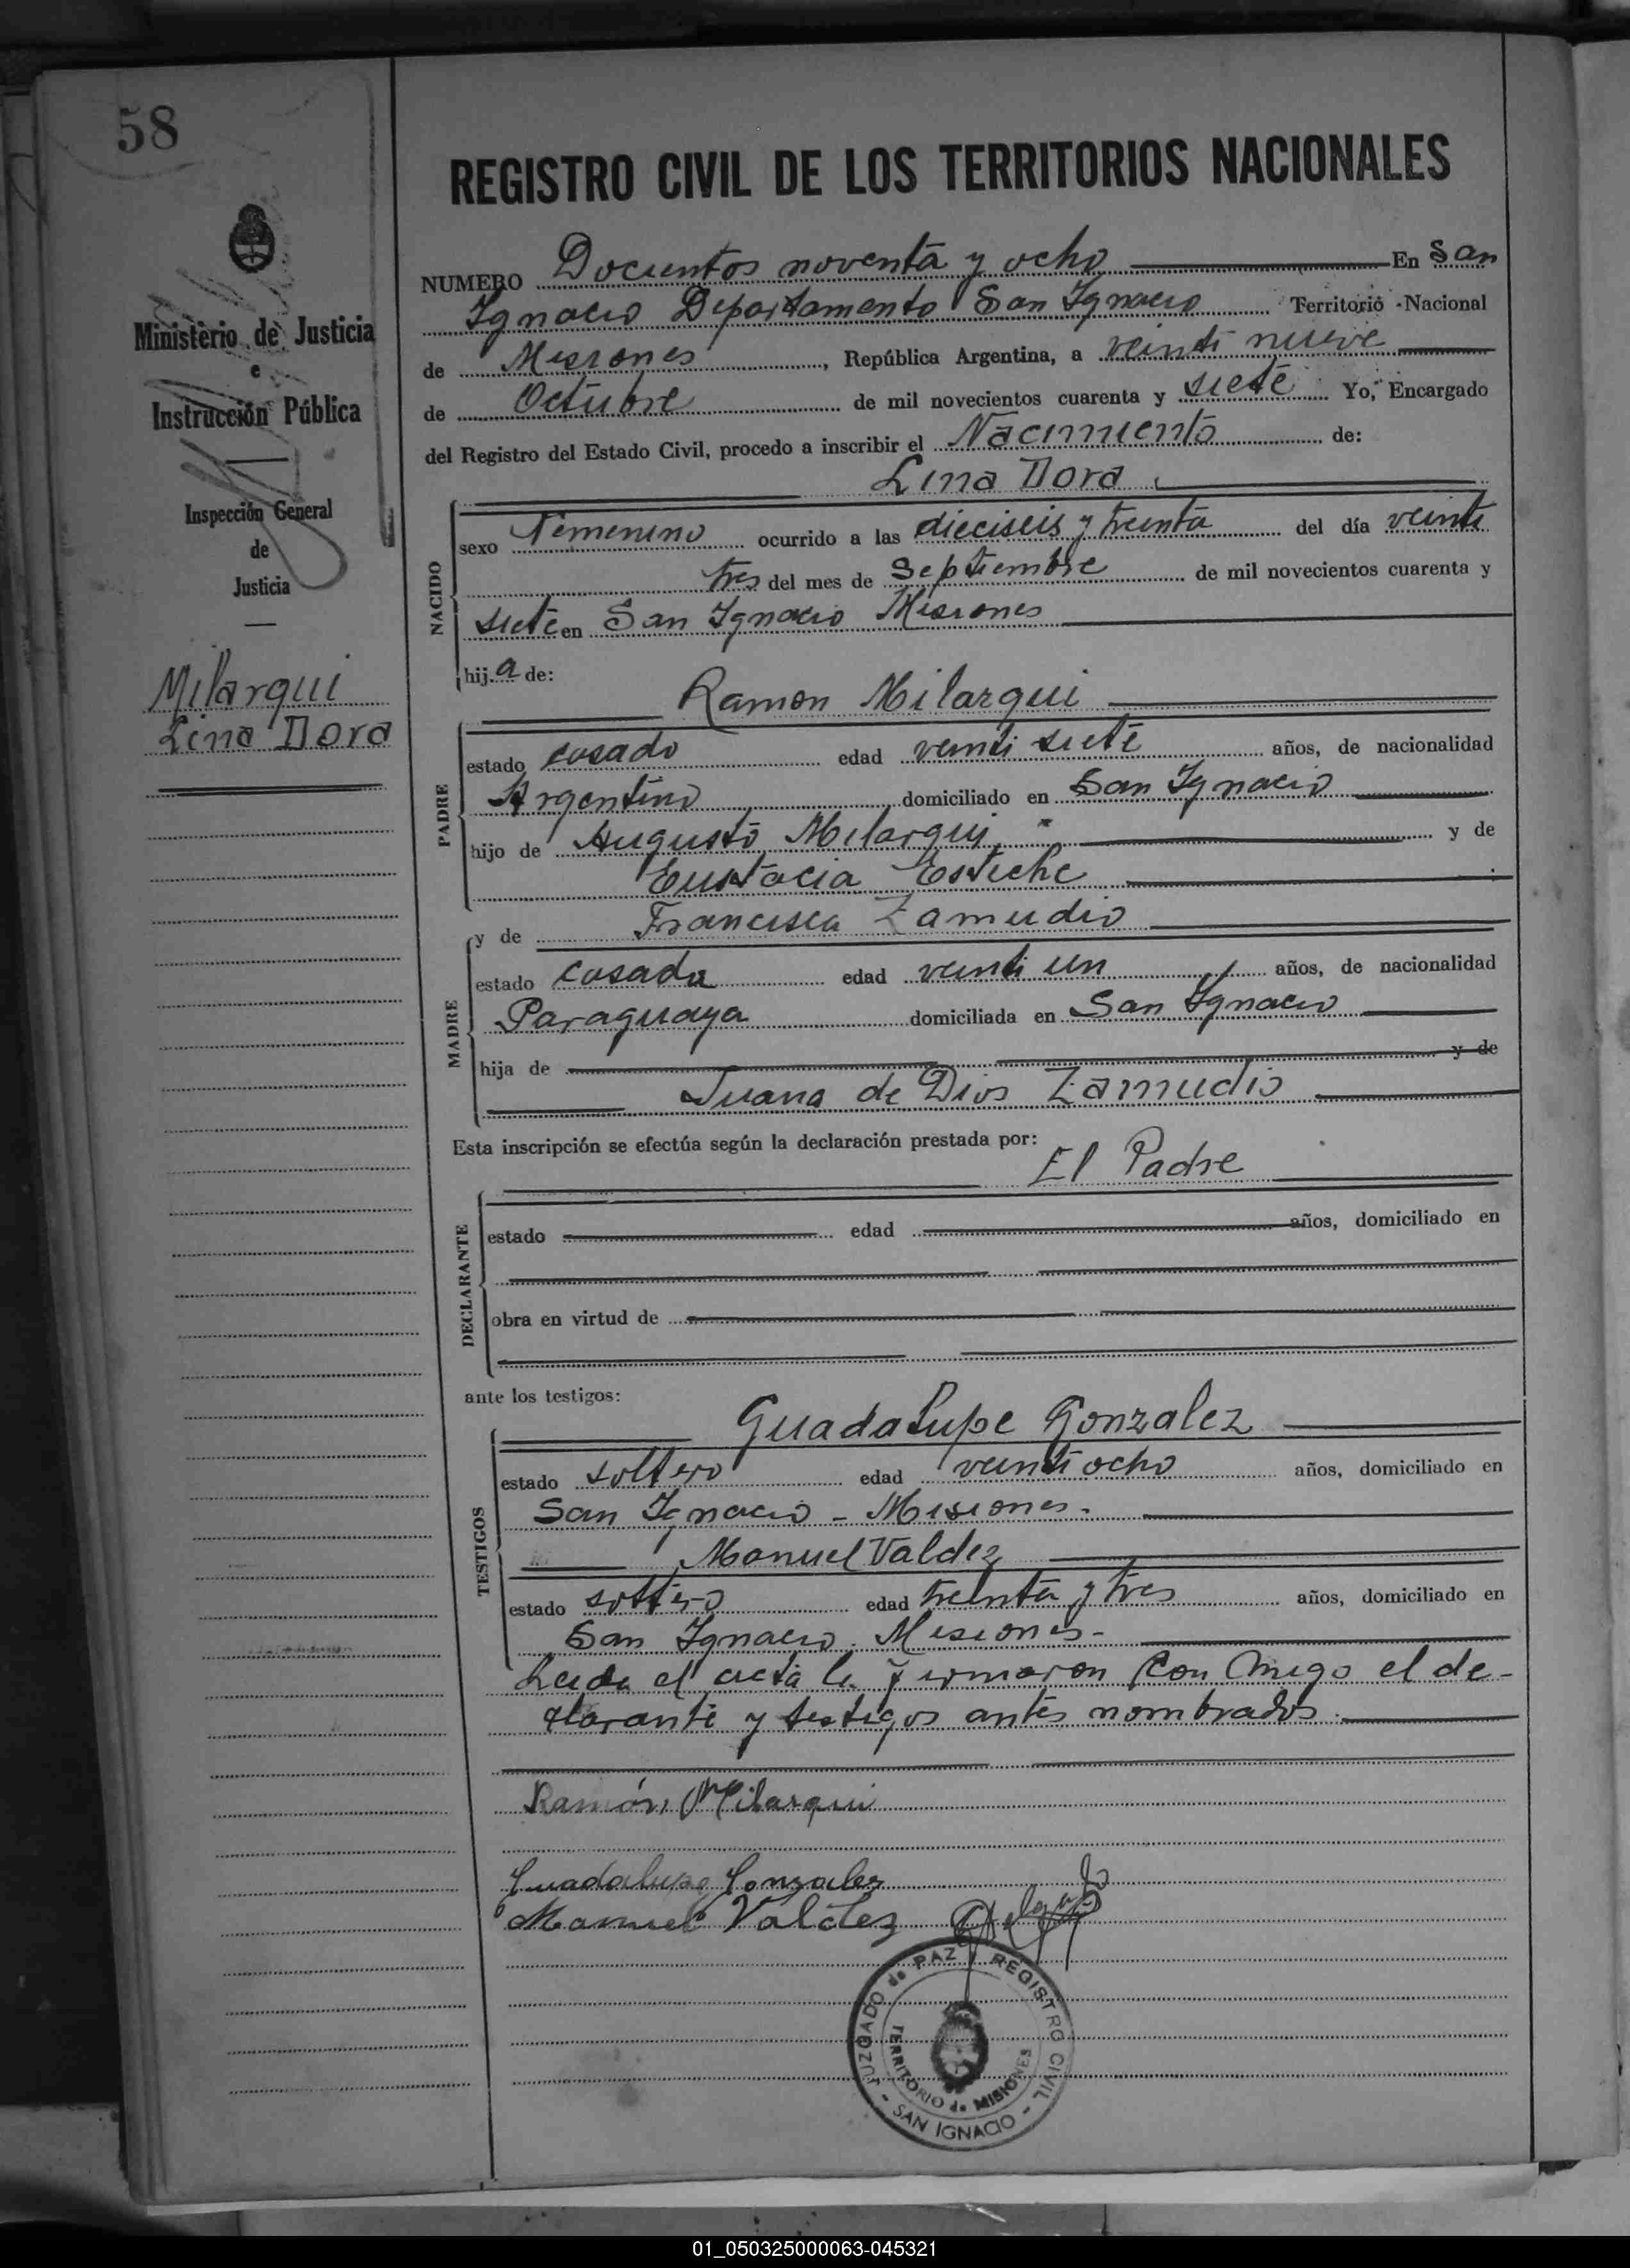 58
REGISTRO CIVIL DE LOS TERRITORIOS NACIONALES
Ministerio de Justicia
e
Instrucción Pública
Inspección General
de
Justicia
Milarqui
Lina Dora
NUMERO Docientos noventa y ocho En San
Ignacio Departamento San Ignacio Territorio Nacional
de Misiones, República Argentina, a veinti nueve
de Octubre de mil novecientos cuarenta y siete Yo, Encargado
del Registro del Estado Civil, procedo a inscribir el Nacimiento de:
Lina Dora
NACIDO
sexo Femenino ocurrido a las dieciseis y treinta del día veinti
tres del mes de Septiembre de mil novecientos cuarenta y
siete en San Ignacio Misiones
hija de:
Ramon Milarqui
PADRE
estado casado edad veinti siete años, de nacionalidad
Argentino domiciliado en San Ignacio
hijo de Augusto Milarqui y de
Eustacia Esteche
y de Francisca Zamudio
MADRE
estado casada edad veinti un años, de nacionalidad
Paraguaya domiciliada en San Ignacio
hija de y de
Juana de Dios Zamudio
Esta inscripción se efectúa según la declaración prestada por:
El Padre
DECLARANTE
estado edad años, domiciliado en
obra en virtud de
ante los testigos:
Guadalupe Gonzalez
TESTIGOS
estado soltero edad veinti ocho años, domiciliado en
San Ignacio - Misiones.
Manuel Valdez
estado soltero edad treinta y tres años, domiciliado en
San Ignacio. Misiones-
Leida el acta la firmaron con migo el de-
clarante y testigos antes nombrados.
Ramón Milarqui
Guadalupe Gonzalez
Manuel Valdez
JUZGADO de PAZ Y REGISTRO CIVIL - SAN IGNACIO -
TERRITORIO de MISIONES
01_050325000063-045321